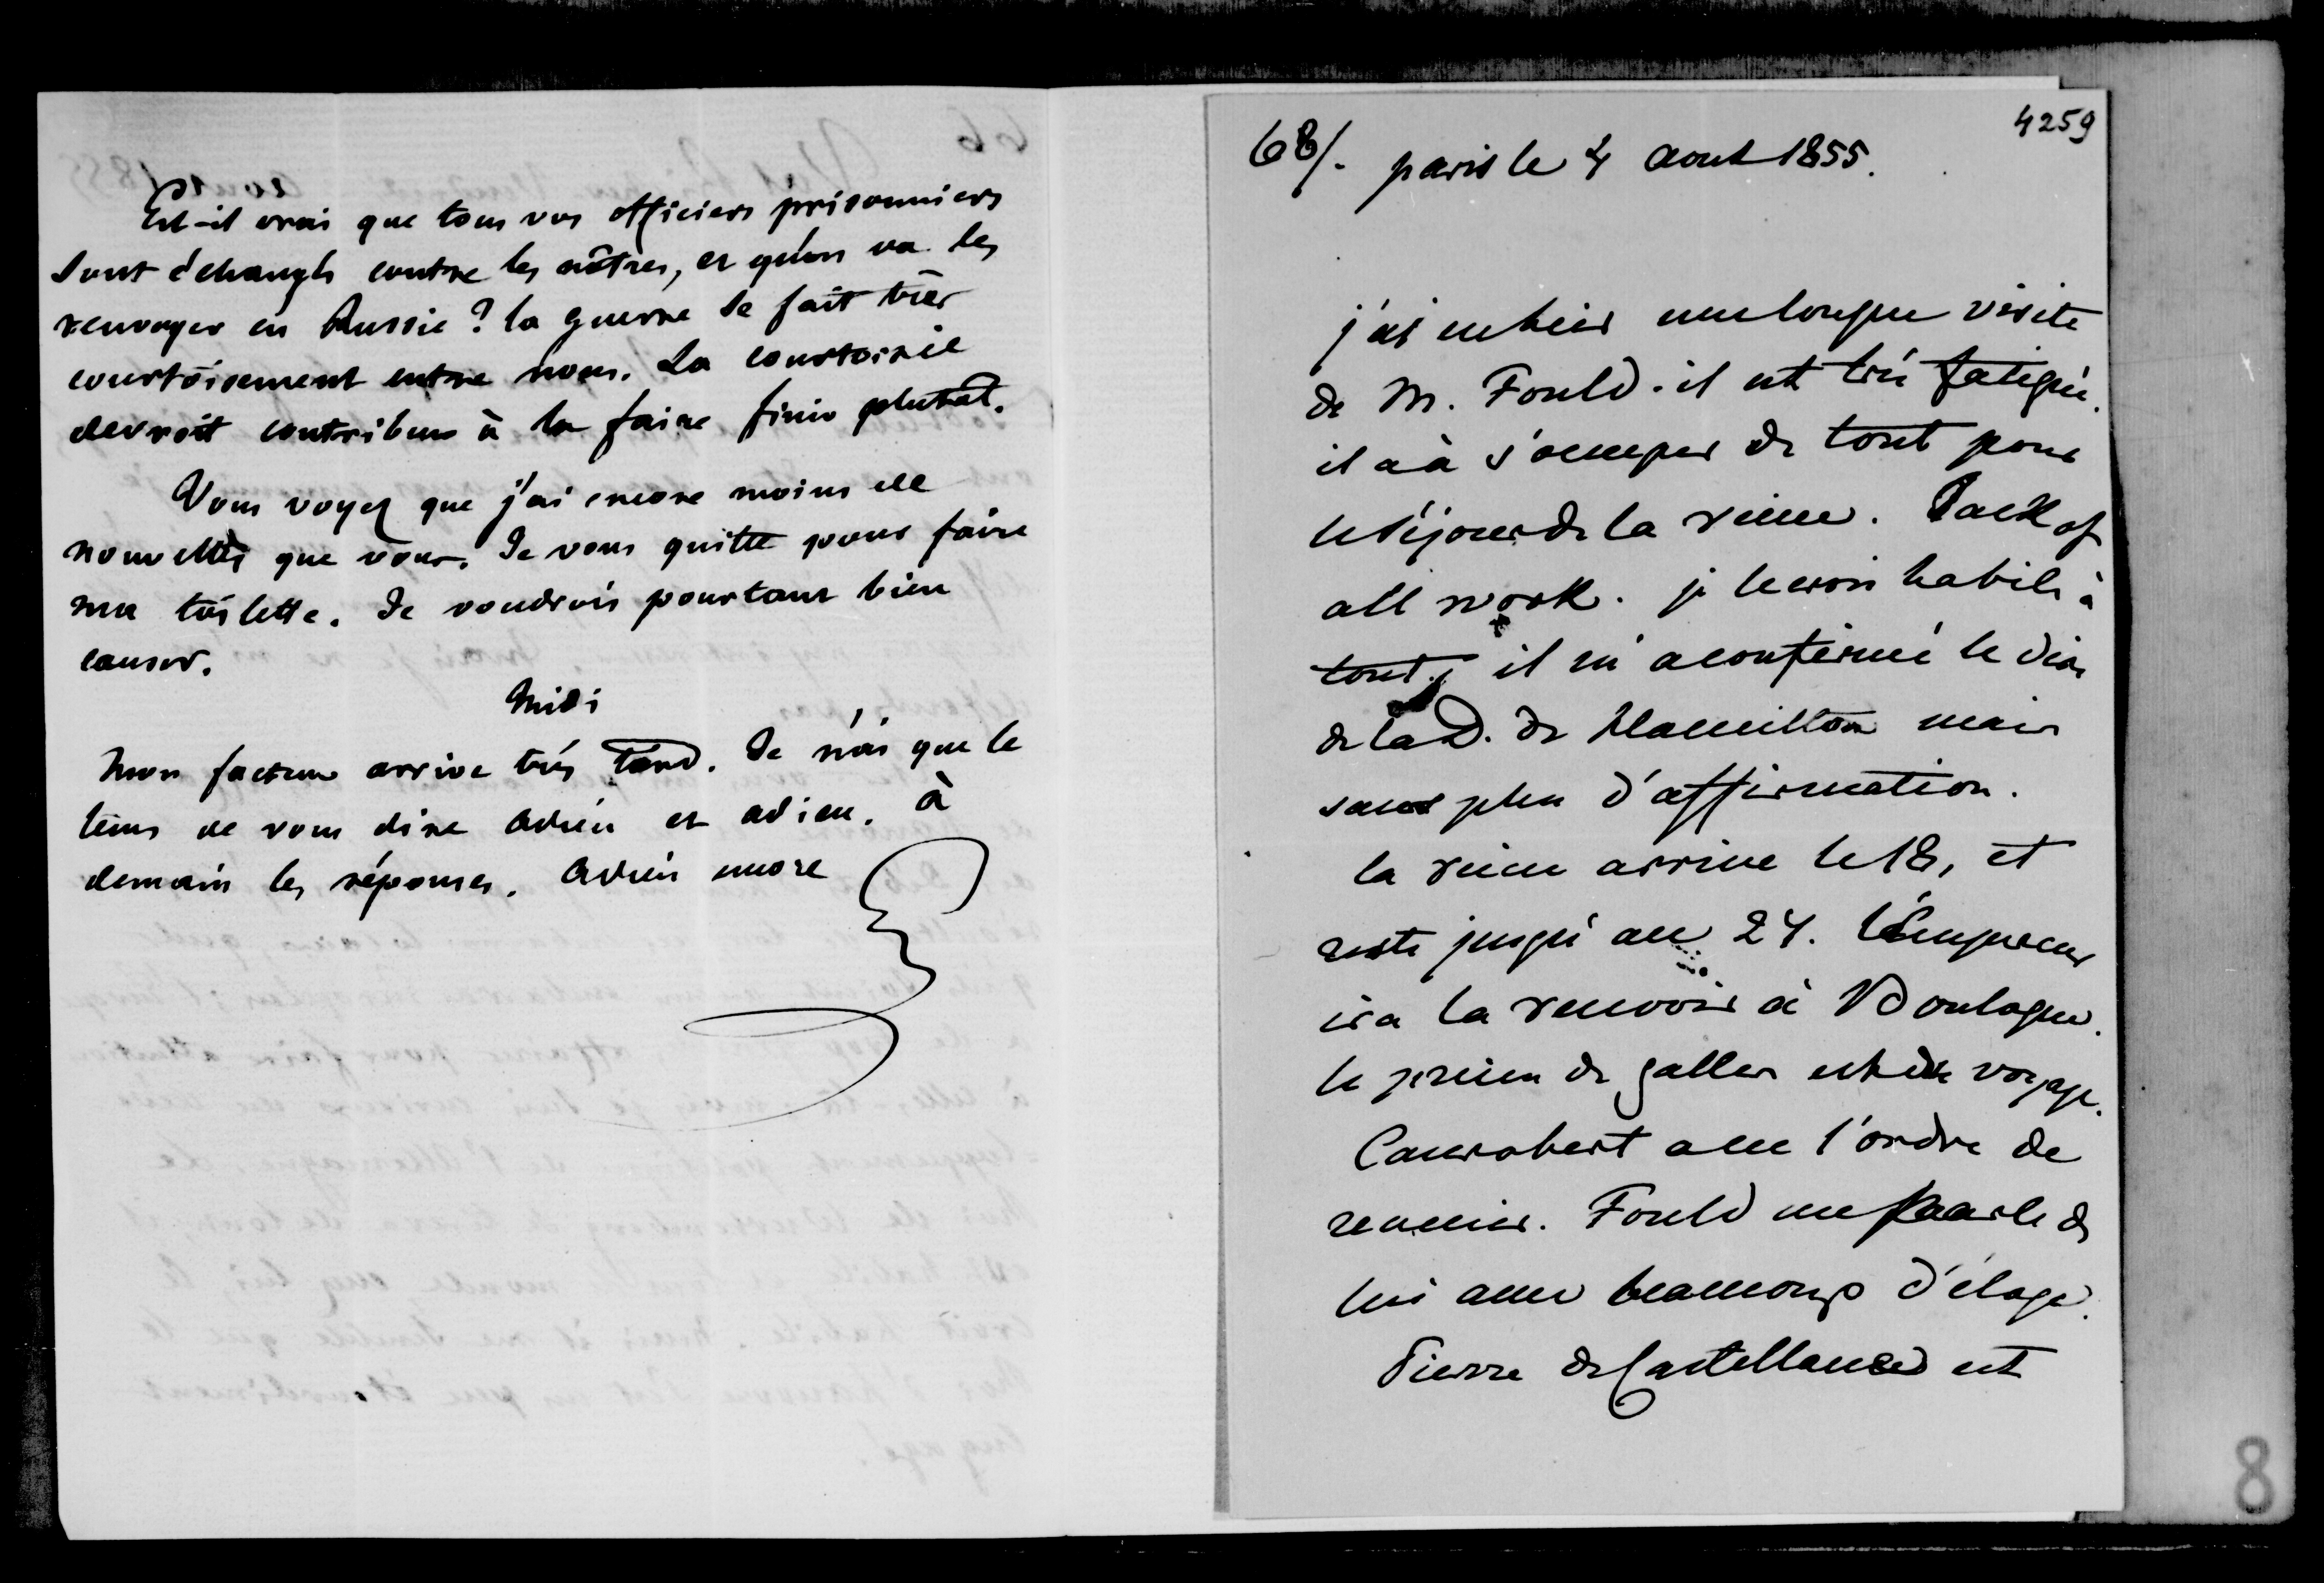 Est-il vrai que tous vos officiers prisonniers
sont échangés contre les nôtres, et qu'on va les
renvoyer en Russie ? la guerre se fait très
courtoisement entre nous. La courtoisie
devroit contribuer à la faire finir plutôt.
Vous voyez que j'ai encore moins de
nouvelles que vous. Je vous quitte pour faire
ma toilette. Je voudrois pourtant bien
causer.
Midi
Mon facteur arrive très tard. Je n'ai que le
tems de vous dire adieu et adieu. à
demain les réponses. Adieu encore
4259
68/. paris le 4 aout 1855.
j'ai eu hier une longue visite
de M. Fould. il est très fatigué.
il a à s'occuper de tout pour
le séjour de la reine. Jack of
all work. je le crois habile à
tout. il m'a confirmé le dire
de la D. de Hamilton mais
sans plus d'affirmation.
la reine arrive le 18, et
reste jusqu'au 27. l'Empereur
ira la recevoir à Boulogne.
le prince de galles est du voyage.
Canrobert a eu l'ordre de
revenir. Fould me parle de
lui avec beaucoup d'éloge.
Pierre de Castellane est
8